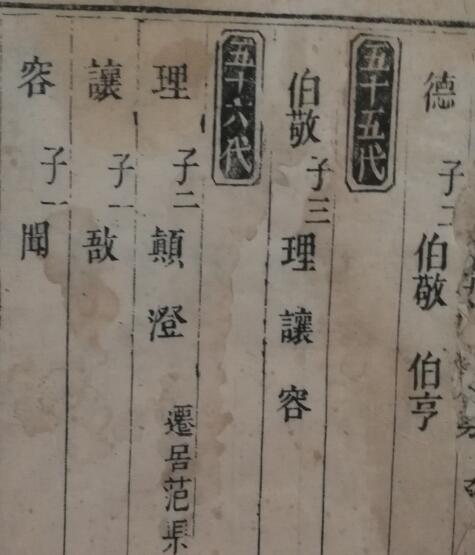 德 子二 伯敬 伯亨
五十五代
伯敬 子三 理 讓 容
五十六代
理 子二 顛 澄 遷居范県
讓 子一 敔
容 子一 聞